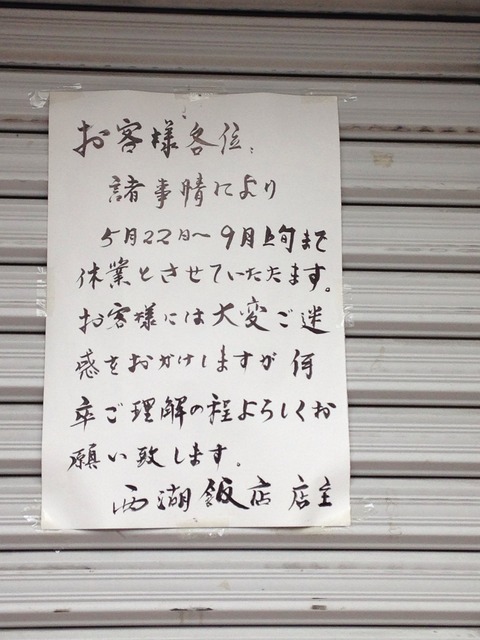 お客様各位:
諸事情により
5月22日〜9月上旬まで
休業とさせていたたます。
お客様には大変ご迷
感をおかけしますが何
卒ご理解の程よろしくお
願い致します。
西湖飯店 店主